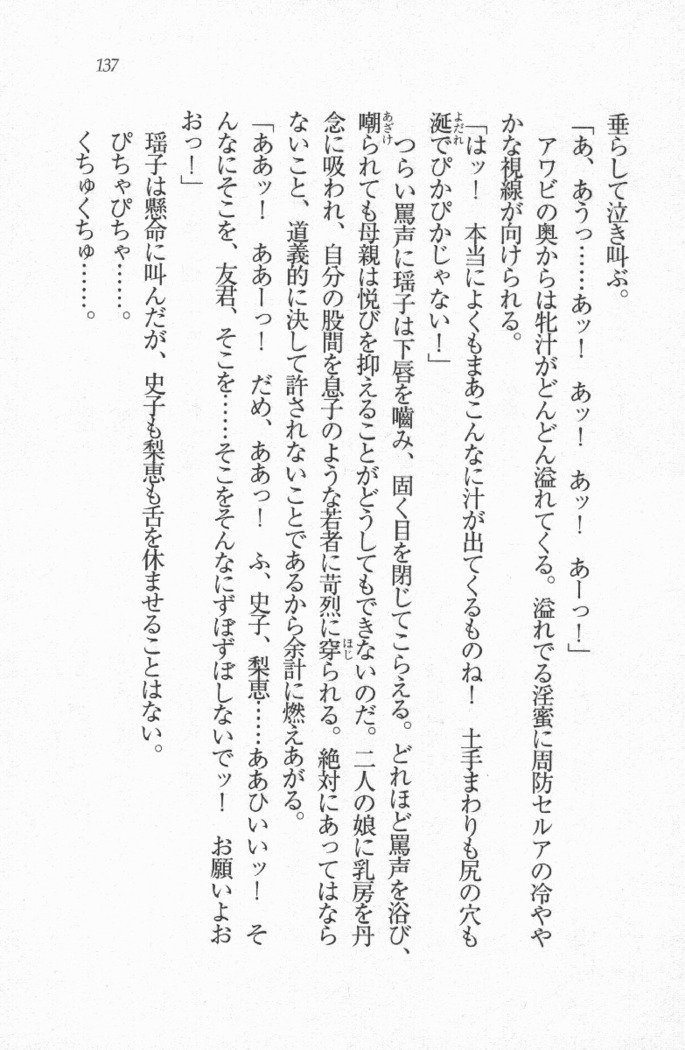 137
垂らして泣き叫ぶ。
「あ、あうっ……あッ！　あッ！　あッ！　あーっ！」
アワビの奥からは牝汁がどんどん溢れてくる。溢れでる淫蜜に周防セルアの冷やや
かな視線が向けられる。
「はッ！　本当によくもまあこんなに汁が出てくるものね！　土手まわりも尻の穴も
涎でぴかぴかじゃない！」
つらい罵声に瑶子は下唇を嚙み、固く目を閉じてこらえる。どれほど罵声を浴び、
嘲られても母親は悦びを抑えることがどうしてもできないのだ。二人の娘に乳房を丹
念に吸われ、自分の股間を息子のような若者に苛烈に穿られる。絶対にあってはなら
ないこと、道義的に決して許されないことであるから余計に燃えあがる。
「ああッ！　ああーっ！　だめ、ああっ！　ふ、史子、梨恵……ああひいいッ！　そ
んなにそこを、友君、そこを……そこをそんなにずぼずぼしないでッ！　お願いよお
おっ！」
瑶子は懸命に叫んだが、史子も梨恵も舌を休ませることはない。
ぴちゃぴちゃ……。
くちゅくちゅ……。